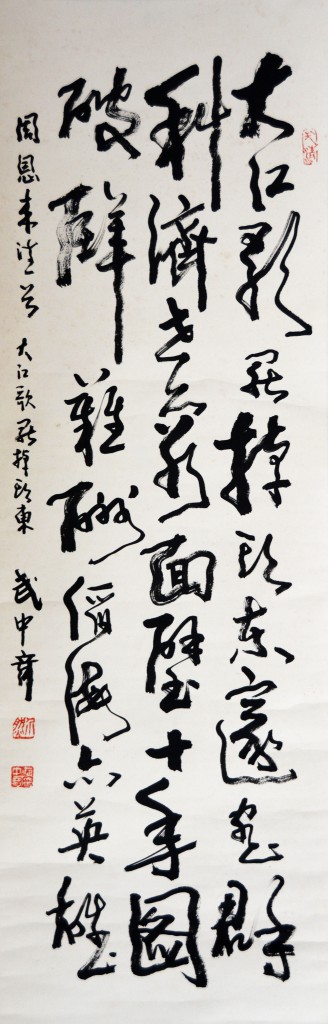 大江歌罷掉頭東邃密群
科濟世窮面壁十年圖
破壁難酬蹈海亦英雄
周恩来詩一首 大江歌罷掉頭東 武中奇